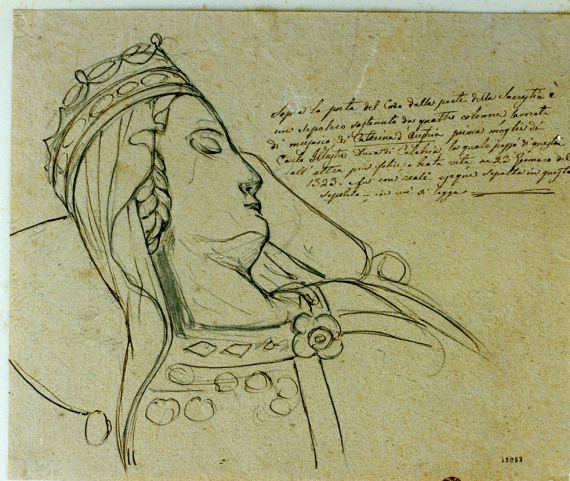 Sopra la porta del Coro dalla parte della Sacrestia è
un sepolcro sostenuto da quattro colonne lavorate
di musaico, di Caterina d'Austria prima moglie di
Carlo Illustre Duca di Calabria, la quale passò di questa
all'altra più felice e beata vita, a 23 Gennaro del
1323. e fu con reali esequie sepolta in questo
sepolcro in cui si legge